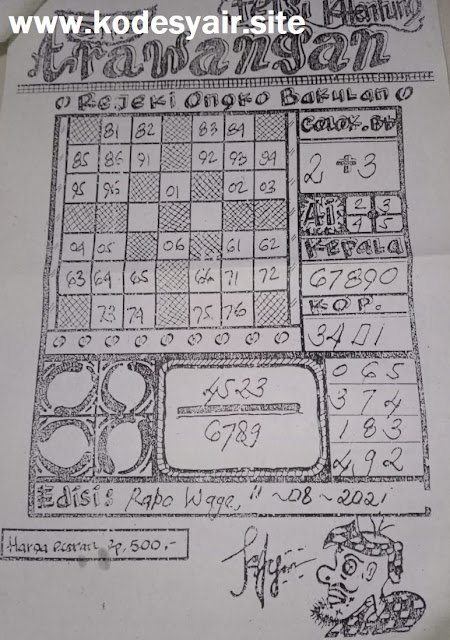 www.kodesyair.site
Trawangan
Rejeki Ongko Bakulan
81 82 83 84
85 86 91 92 93 94
95 96 01 02 03
04 05 06 61 62
63 64 65 66 71 72
73 74 75 76
COLOK.BB
2 + 3
Ai
2 3
4 5
Kepala
67890
KOP.
3401
065
374
183
492
4523
6789
Edisi: Rabo Wage, 11-08-2021
Harga Rp, 500,-